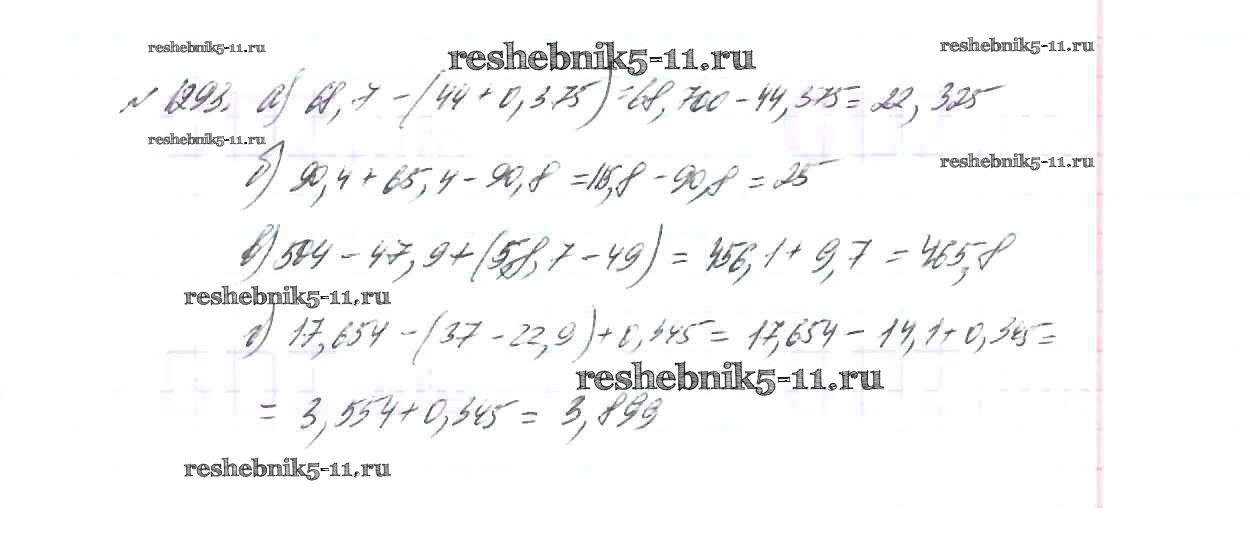 reshebnik5-11.ru reshebnik5-11.ru reshebnik5-11.ru
№ 1293. а) 68,7 - (44 + 0,375) = 68,700 - 44,375 = 22,325
reshebnik5-11.ru
б) 90,4 + 65,4 - 90,8 = 115,8 - 90,8 = 25
reshebnik5-11.ru
в) 504 - 47,9 + (58,7 - 49) = 456,1 + 9,7 = 465,8
reshebnik5-11.ru
г) 17,654 - (37 - 22,9) + 0,345 = 17,654 - 14,1 + 0,345 =
reshebnik5-11.ru
= 3,554 + 0,345 = 3,899
reshebnik5-11.ru